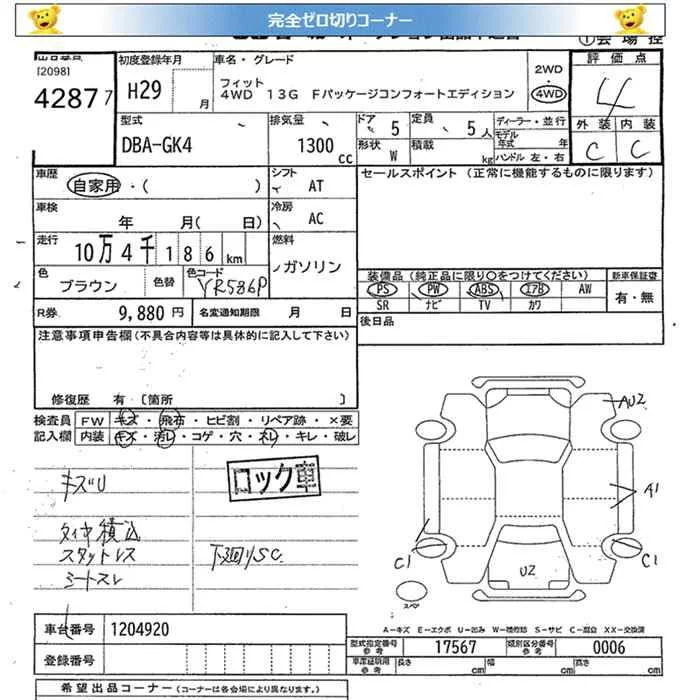 完全ゼロ切りコーナー
[2098]
42877
初度登録年月
H29
月
車名・グレード
フィット
4WD 13G Fパッケージコンフォートエディション
2WD
4WD
評価点
4
外装 内装
C C
型式
DBA-GK4
排気量
1300
cc
ドア
5
定員
5人
形状
W
積載
kg
ディーラー・並行
モデル年式 年
ハンドル 左・右
車歴
自家用・( )
シフト
AT
セールスポイント (正常に機能するものに限ります)
車検
年 月( 日)
冷房
AC
走行
10万4千186km
燃料
ガソリン
色
ブラウン
色替
色コード
YR586P
装備品 (純正品に限り○をつけてください)
新車保証書
PS PW ABS エアB AW
有・無
SR ナビ TV カワ
R券
9,880円
名変通知期限 月 日
後日品
注意事項申告欄 (不具合内容等は具体的に記入して下さい)
修復歴 有 〔箇所 〕
検査員記入欄
FW キズ・飛石・ヒビ割・リペア跡・×要
内装 キズ・汚レ・コゲ・穴・スレ・キレ・破レ
ロック車
キズU
タイヤ積込
スタットレス
シートスレ
下廻りSC
AU2
A1
C1
C1
U2
スペア
A-キズ E-エクボ U-凹み W-補修跡 S-サビ C-腐食 XX-交換済
車台番号 1204920
登録番号
型式指定番号 参考 17567
類別区分番号 参考 0006
車庫証明用 参考 長さ cm 幅 cm 高さ cm
希望出品コーナー (コーナーは各会場により異なります。)